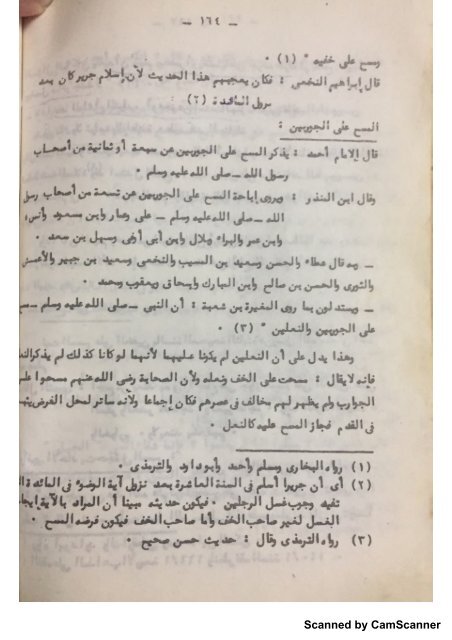 — ١٦٤ —
ومسح على خفيه " (١) .
قال إبراهيم النخعى : فكان يعجبهم هذا الحديث لأن إسلام جرير كان بعد
نزول المائدة (٢)
المسح على الجوربين :
قال الإمام أحمد : يذكر المسح على الجوربين عن سبعة أو ثمانية من أصحاب
رسول الله — صلى الله عليه وسلم .
وقال ابن المنذر : ويروى إباحة المسح على الجوربين عن تسعة من أصحاب رسول
الله — صلى الله عليه وسلم — على وعمار وابن مسعود وأنس
وابن عمر والبراء وبلال وابن أبى أوفى وسهل بن سعد .
— وبه قال عطاء والحسن وسعيد بن المسيب والنخعى وسعيد بن جبير والأعمش
والثورى والحسن بن صالح وابن المبارك وإسحاق ويعقوب ومحمد .
— ويستدلون بما روى المغيرة بن شعبة : أن النبى — صلى الله عليه وسلم — مسح
على الجوربين والنعلين " (٣) .
وهذا يدل على أن النعلين لم يكونا عليهما لأنهما لو كانا كذلك لم يذكر
فإنه لا يقال : مسحت على الخف ونعله ولأن الصحابة رضى الله عنهم مسحوا على
الجوارب ولم يظهر لهم مخالف فى عصرهم فكان إجماعا ولأنه ساتر لمحل الفرض
فى القدم فجاز المسح عليه كالنعل .
(١) رواه البخارى ومسلم وأحمد وأبو داود والترمذى .
(٢) أى أن جريرا أسلم فى السنة العاشرة بعد نزول آية الوضوء فى المائدة
تفيد وجوب غسل الرجلين . فيكون حديثه مبينا أن المراد بالآية
الغسل لغير صاحب الخف وأما صاحب الخف فيكون فرضه المسح .
(٣) رواه الترمذى وقال : حديث حسن صحيح .
Scanned by CamScanner